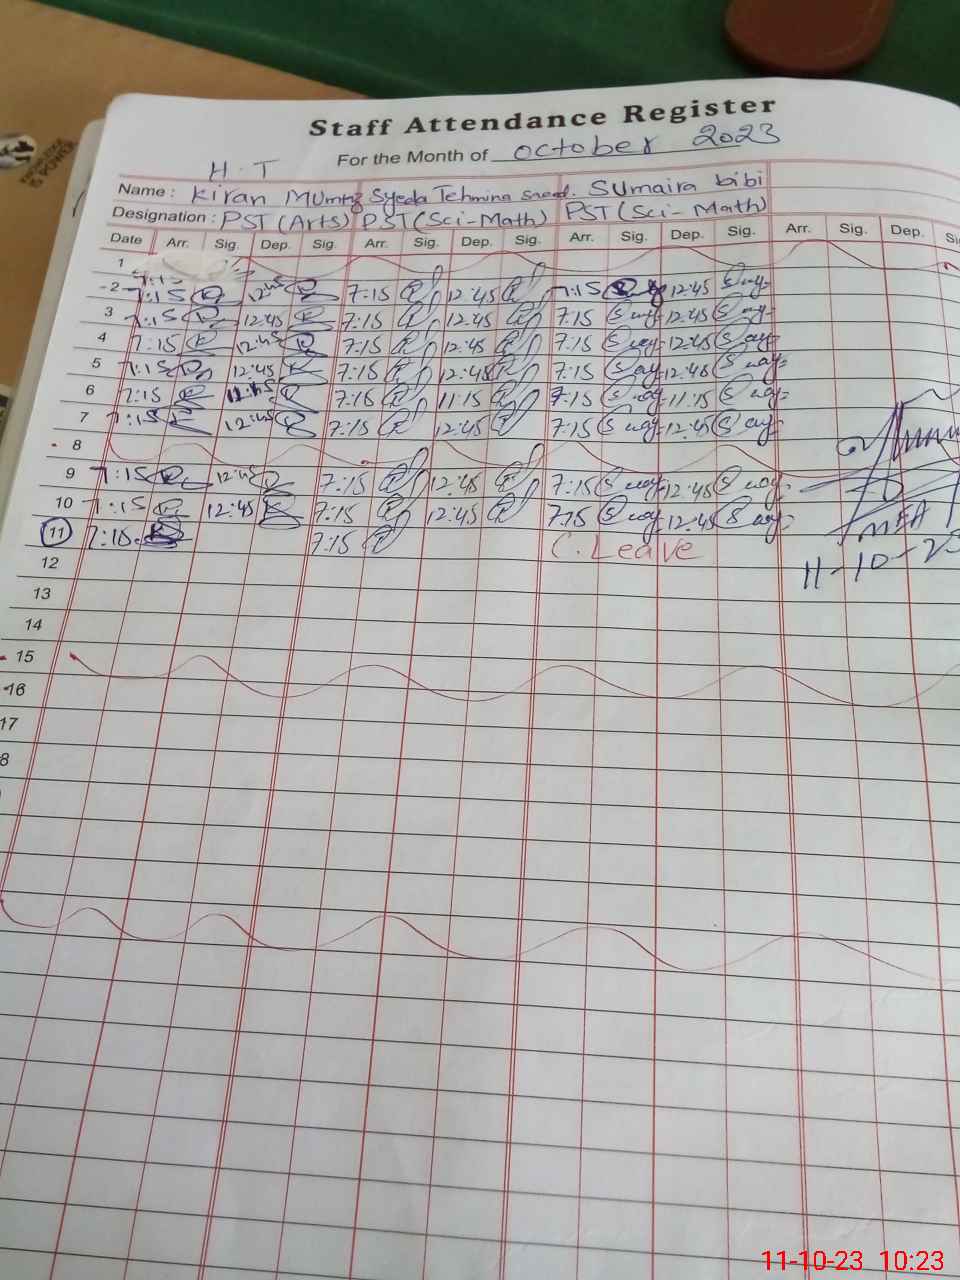 Staff Attendance Register
For the Month of October 2023
H.T
Name: Kiran Mumtaz Syeda Tehmina Saeed. Sumaira bibi
Designation: PST (Arts) PST (Sci-Math) PST (Sci-Math)
Date Arr. Sig. Dep. Sig. Arr. Sig. Dep. Sig. Arr. Sig. Dep. Sig. Arr. Sig. Dep.
1
2 7:15 12:45 7:15 12:45 7:15 12:45
3 7:15 12:45 7:15 12:45 7:15 12:45
4 7:15 12:45 7:15 12:45 7:15 12:45
5 7:15 12:45 7:15 12:45 7:15 12:45
6 7:15 7:15 11:15 7:15 11:15
7 7:15 12:45 7:15 12:45 7:15 12:45
8
9 7:15 12:45 7:15 12:45 7:15 12:45
10 7:15 12:45 7:15 12:45 7:15 12:45
11 7:15 7:15 C. Leave
MEA
11-10-23
12
13
14
15
16
17
8
11-10-23 10:23